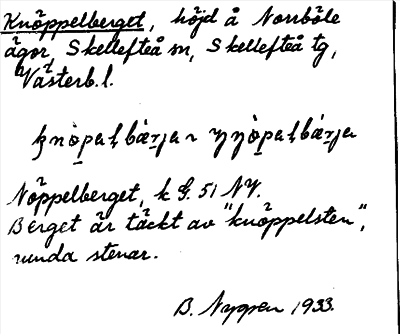 Knöppelberget, höjd å Norrböle
ägor Skellefteå sn, Skellefteå tg,
Västerb. l.
Nöppelberget, k G. 51 NV.
Berget är täckt av "knöppelsten",
runda stenar.
B. Nygren 1933.